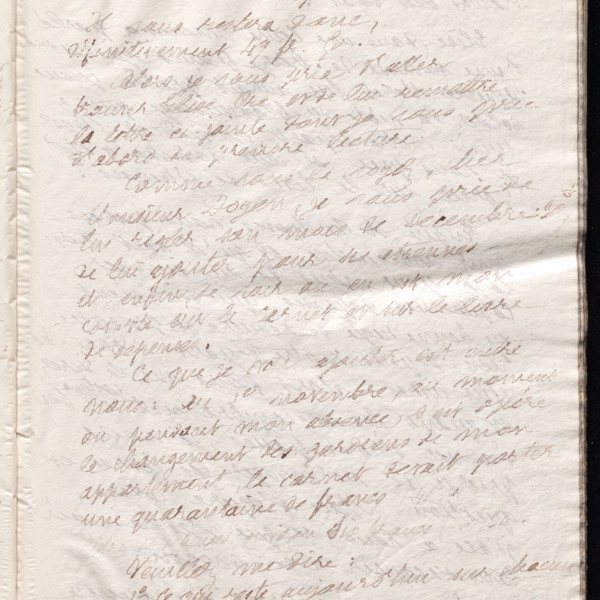 il vous restera donc,
définitivement 47 fr.
Alors je vous prie d'aller
trouver et de lui remettre
la lettre ci-jointe dont je vous prie
d'abord de prendre lecture.
Comme vous le voyez, cher
Monsieur Doyen, je vous prie de
lui régler son mois de décembre
de lui ajouter pour ses étrennes
et enfin de voir où en est mon
compte sur le carnet et sur le livre
de dépense.
Ce que je ajouter est entre
nous: au 1er novembre, au moment
où, pendant mon absence, s'est opéré
le changement des gardiens de mon
appartement, le carnet devait porter
une quarantaine de francs
Veuillez me dire:
1º ce qui reste aujourd'hui sur